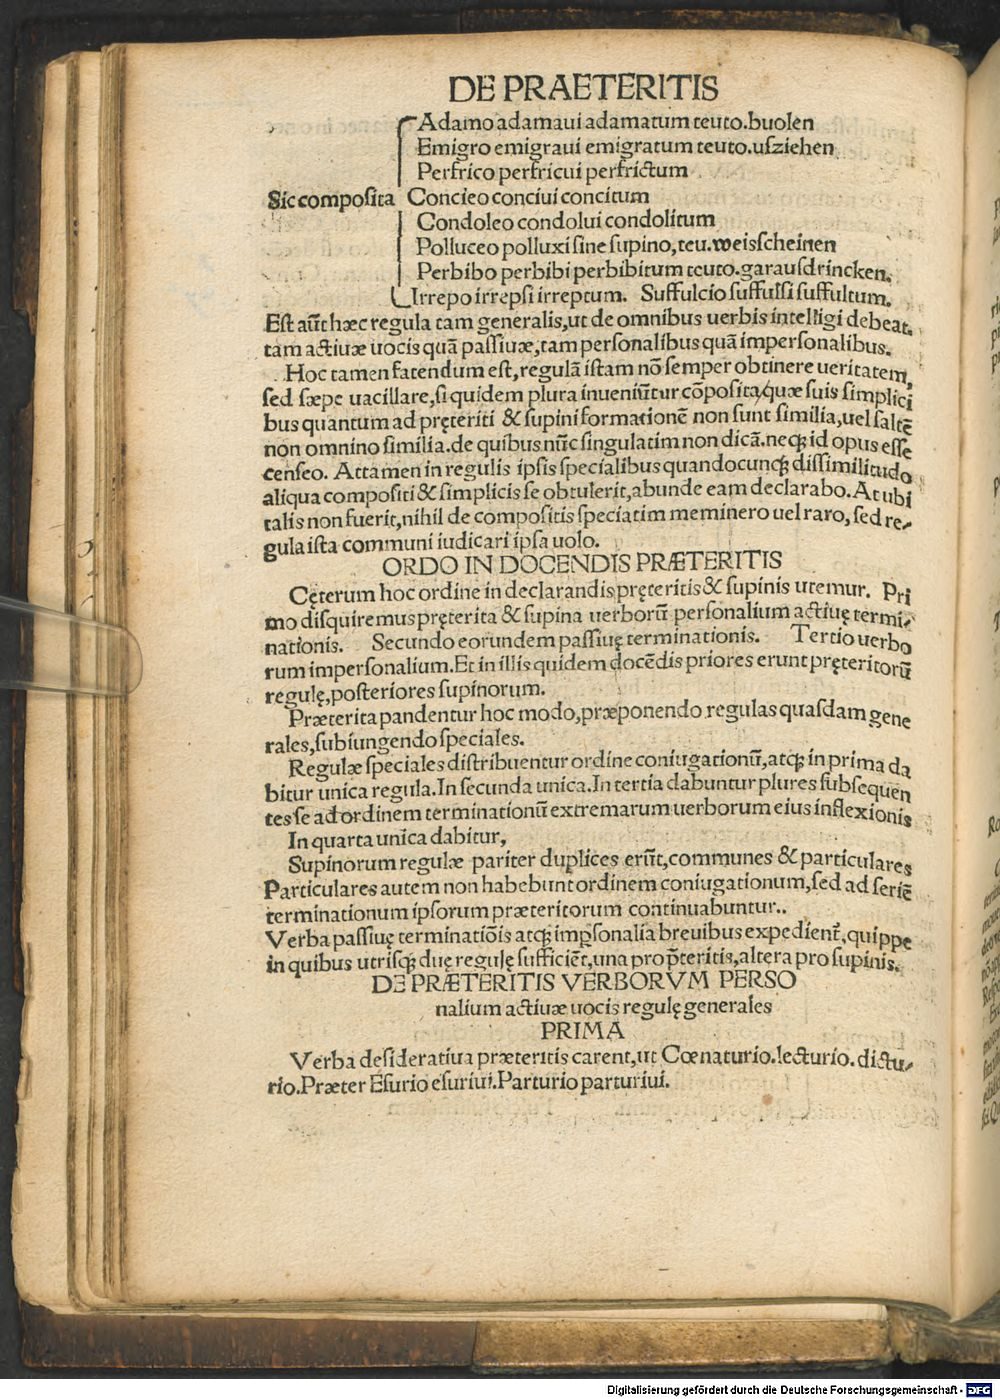 DE PRAETERITIS
Adamo adamaui adamatum teuto.buolen
Emigro emigraui emigratum teuto.usziehen
Perfrico perfricui perfrictum
Sic composita Concieo conciui concitum
Condoleo condolui condolitum
Polluceo polluxi sine supino,teu.weisscheinen
Perbibo perbibi perbibitum teuto.garausdrincken.
Irrepo irrepsi irreptum. Suffulcio suffulsi suffultum.
Est aūt hæc regula tam generalis,ut de omnibus uerbis intelligi debeat.
tam actiuæ uocis quā passiuæ,tam personalibus quā impersonalibus.
Hoc tamen fatendum est,regulā istam nō semper obtinere ueritatem,
sed sæpe uacillare,si quidem plura inueniūtur cōposita,quæ suis simplici
bus quantum ad pręteriti & supini formationē non sunt similia,uel saltē
non omnino similia.de quibus nūc singulatim non dicā.neqꝫ id opus esse
censeo. Attamen in regulis ipsis specialibus quandocunqꝫ dissimilitudo
aliqua compositi & simplicis se obtulerit,abunde eam declarabo. At ubi
talis non fuerit,nihil de compositis speciatim meminero uel raro, sed re-
gula ista communi iudicari ipsa uolo.
ORDO IN DOCENDIS PRÆTERITIS
Cęterum hoc ordine in declarandis pręteritis & supinis utemur. Pri
mo disquiremus pręterita & supina uerborū personalium actiuę termi-
nationis. Secundo eorundem passiuę terminationis. Tertio uerbo
rum impersonalium. Et in illis quidem docēdis priores erunt pręteritorū
regulę,posteriores supinorum.
Præterita pandentur hoc modo,præponendo regulas quasdam gene
rales,subiungendo speciales.
Regulæ speciales distribuentur ordine coniugationū,atqꝫ in prima da
bitur unica regula.In secunda unica.In tertia dabuntur plures subsequen
tes se ad ordinem terminationū extremarum uerborum eius inflexionis
In quarta unica dabitur,
Supinorum regulæ pariter duplices erūt,communes & particulares
Particulares autem non habebunt ordinem coniugationum,sed ad seriē
terminationum ipsorum præteritorum continuabuntur..
Verba passiuę terminatiōis atqꝫ imꝑsonalia breuibus expedient᷑,quippe
in quibus utrisqꝫ duę regulę sufficiēt,una pro p̄teritis,altera pro supinis.
DE PRÆTERITIS VERBORVM PERSO
nalium actiuæ uocis regulę generales
PRIMA
Verba desideratiua præteritis carent,ut Cœnaturio.lecturio. dictu-
rio.Præter Esurio esuriui.Parturio parturiui.
Digitalisierung gefördert durch die Deutsche Forschungsgemeinschaft - DFG